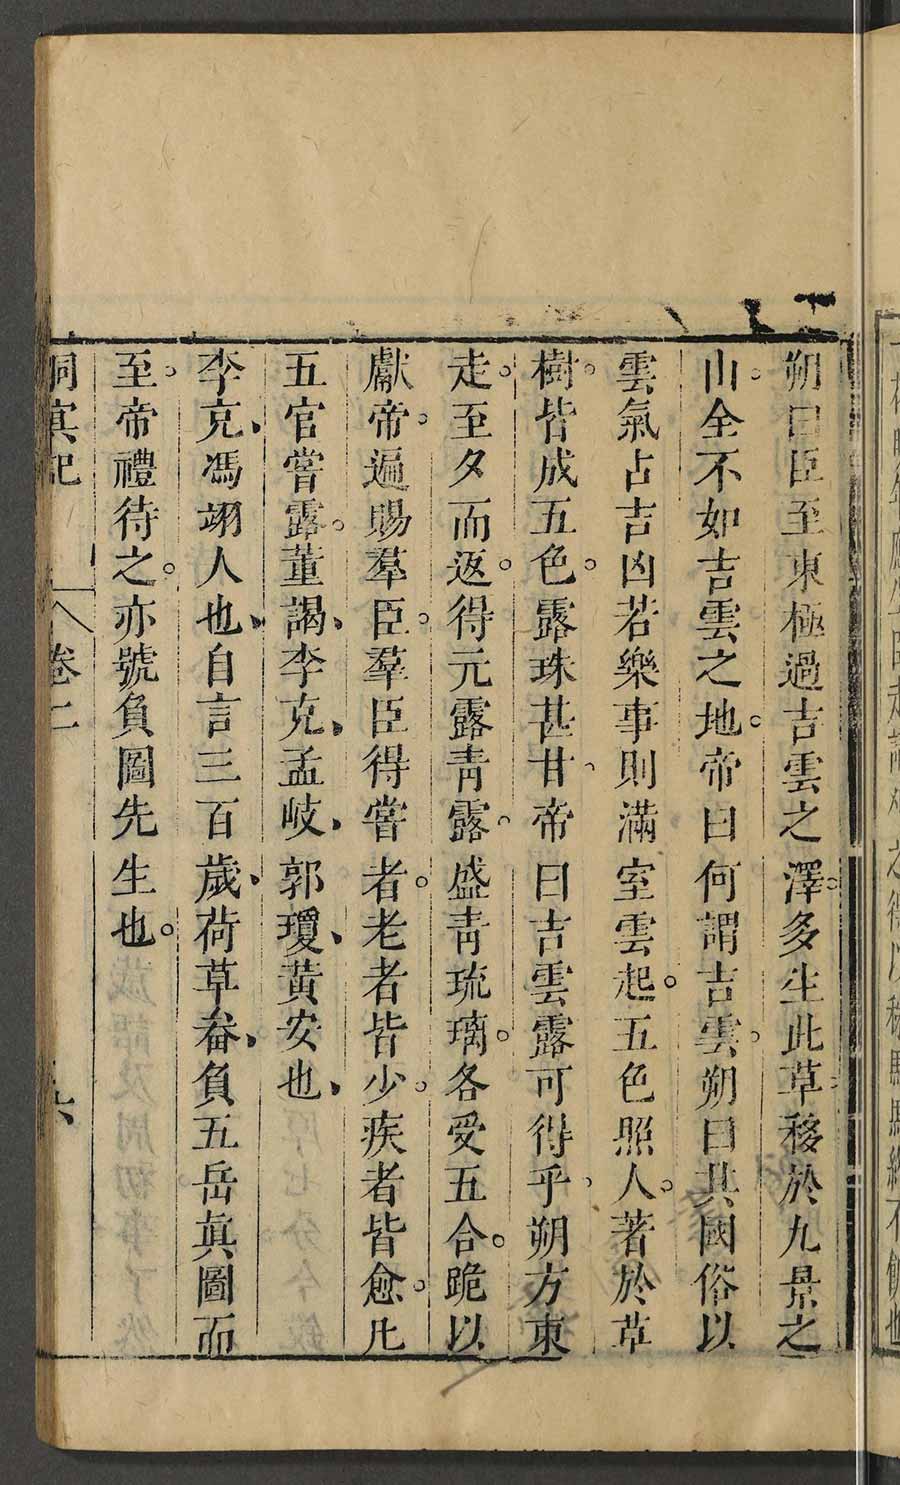 朔曰臣至東極過吉雲之澤。多生此草移於九景之
山。全不如吉雲之地。帝曰何謂吉雲。朔曰其國俗以
雲氣占吉凶若樂事則滿室雲起。五色照人。著於草
樹。皆成五色。露珠甚甘、帝曰吉雲露可得乎、朔方東
走。至夕而返。得元露靑露。盛靑琉璃。各受五合。跪以
獻帝。遍賜羣臣。羣臣得嘗者。老者皆少。疾者皆愈。凡
五官嘗露。董謁、李克、孟岐、郭瓊、黃安也、
李克、馮翊人也、自言三百歲、荷草畚、負五岳眞圖而
至。帝禮待之。亦號負圖先生也。
洞冥記 卷二 六